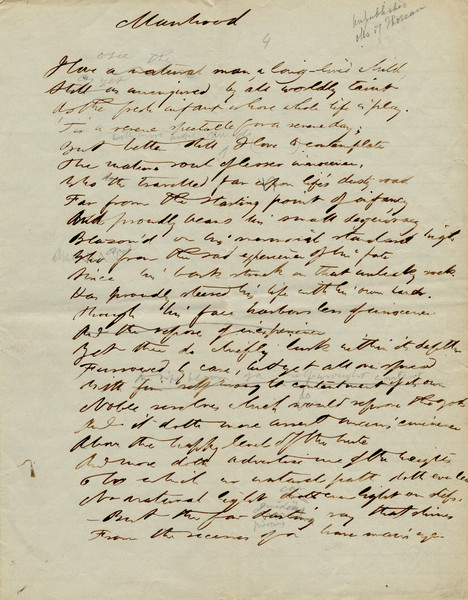 Manhood
4
unpublished
Ms of Thoreau
I love a natural man, a long-lived child
Still as uninjured by all worldly taint
As the fresh infant whose whole life is play.
'Tis a serene spectacle for a serene day;
But better still I love to contemplate
The mature soul of lesser innocence,
Who hath travelled far on life's dusty road
Far from the starting point of infancy
And proudly bears his small degen'racy
Blazon'd on his memorial standard high
Who from the sad experience of his fate
Since his bark struck on that unlucky rock
Has proudly steered his life with his own hands.
Though his face harbors less of innocence
And the repose of inexperience
Yet there do chiefly lurk within its depths
Furrowed by care, but yet all over spread
With the ripe contentment of
Noble resolves which would reform the
And it doth more assert man's eminence
Above the happy level of the brute
And more doth advertise me of the heights
To which no natural path doth ever lead
No natural light can ever light our steps.
—But the far-darting ray that shines
From the recesses of a brave man's eye.